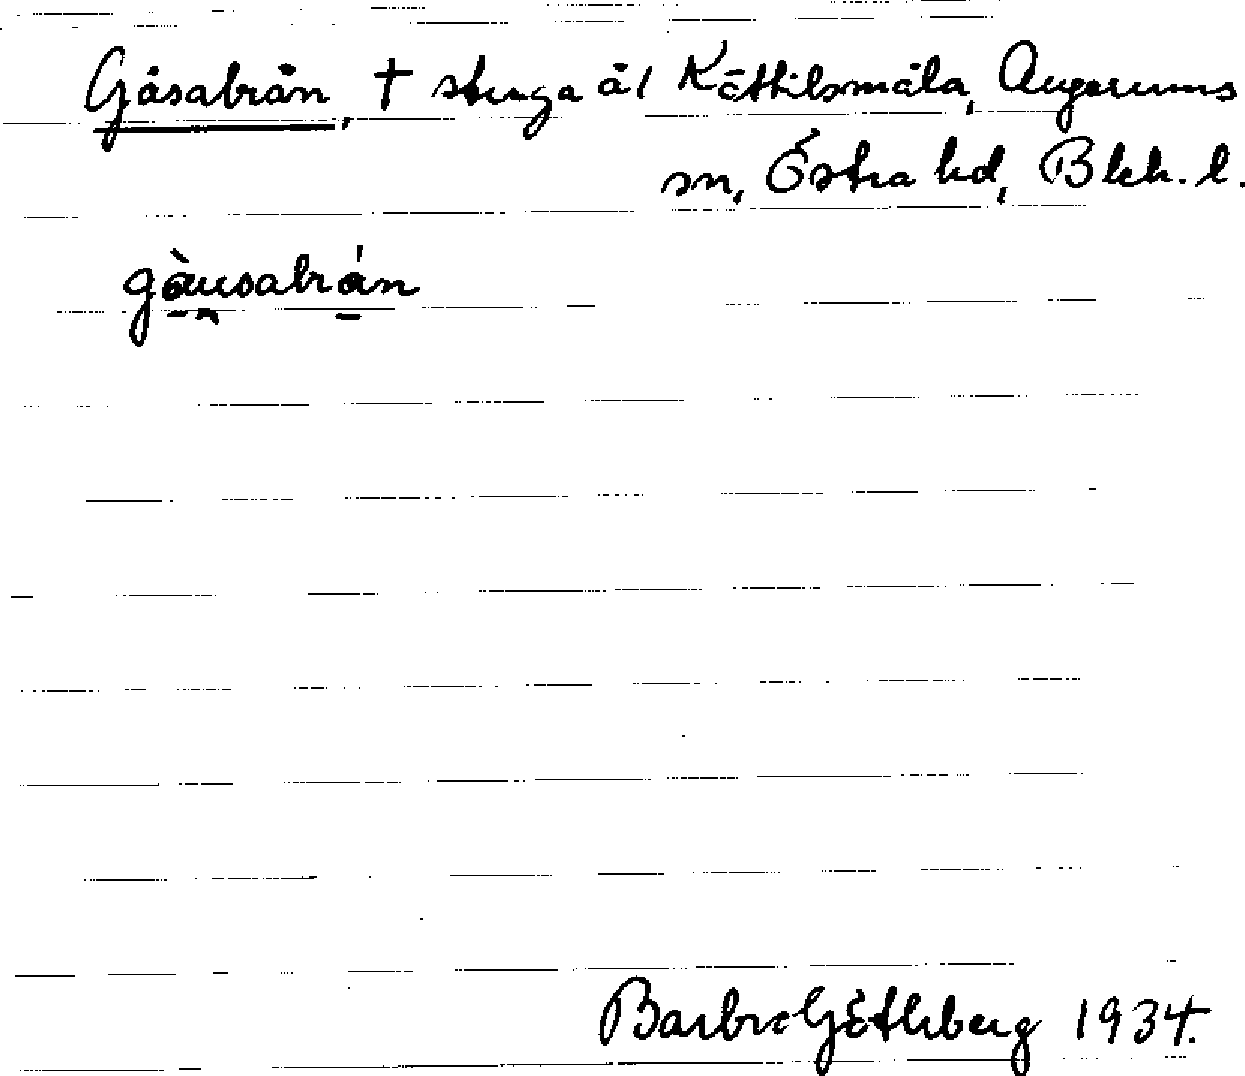 Gåsabrån, † stuga åt Köttilsmåla, Augerums
sn, Östra hd, Blek. l.
gàusabrán
Barbro Götlberg 1934.